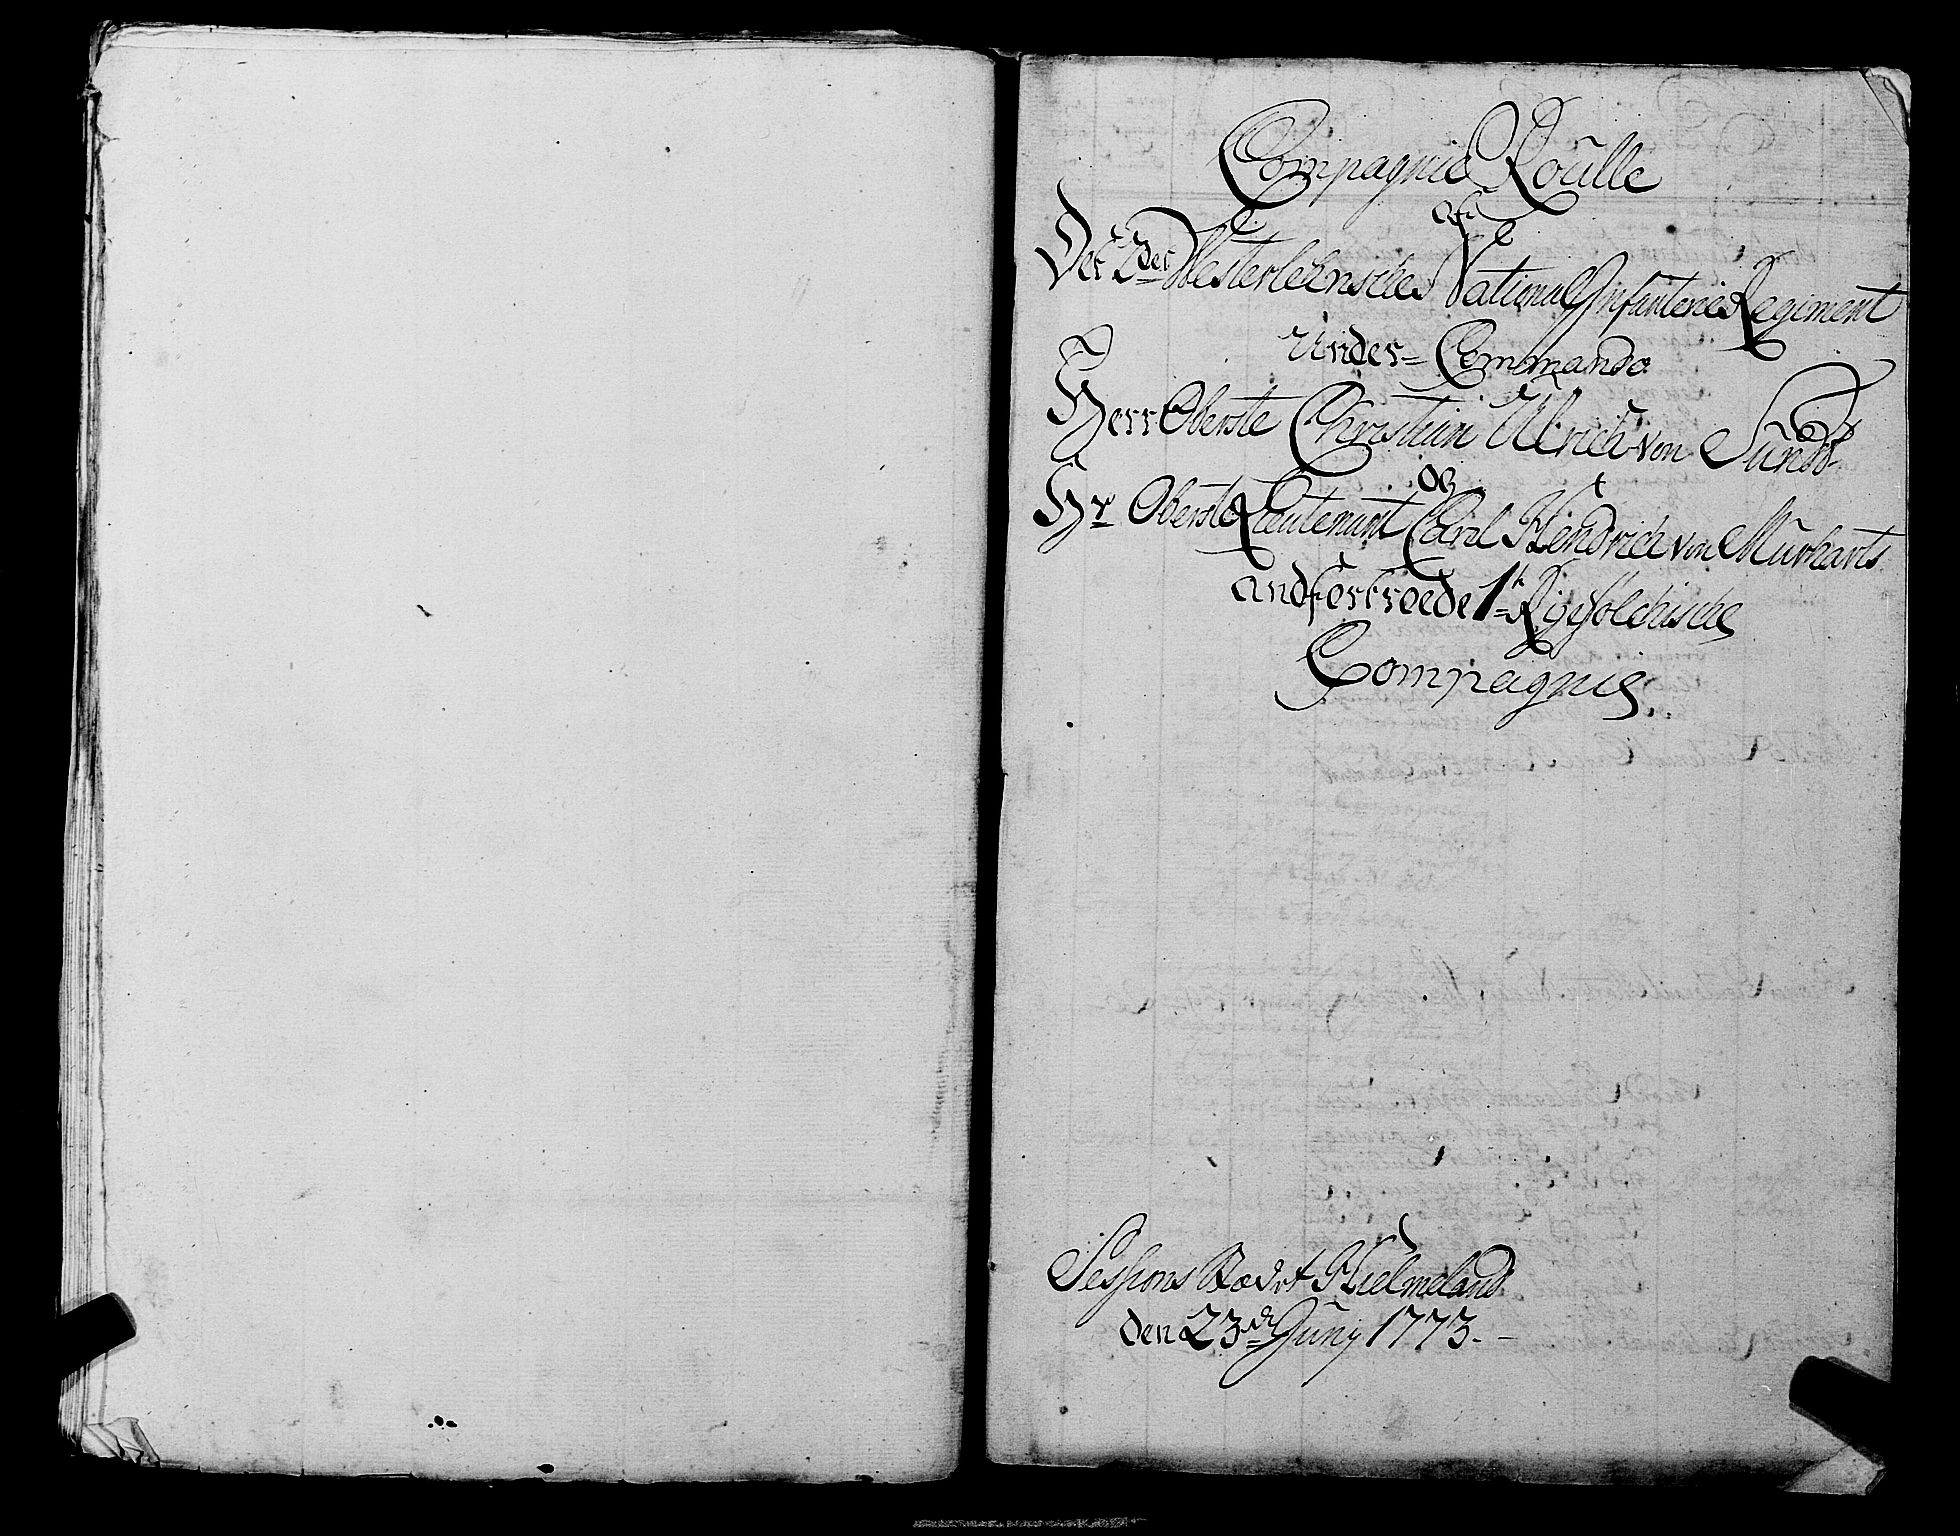 Compagnie Roülle
af
Det 2det Westerlehnsches National Infanterie Regiment
Under= Commando
Herr Oberste Christian Ulrich von Sundt
og
Hr Oberste Lieutenant Carl Hendrich von Mürharts
andfortroede 1te Ryefölckische
Compagnie.
Sessions Stædet Hielmeland
den 23de Juny 1773.